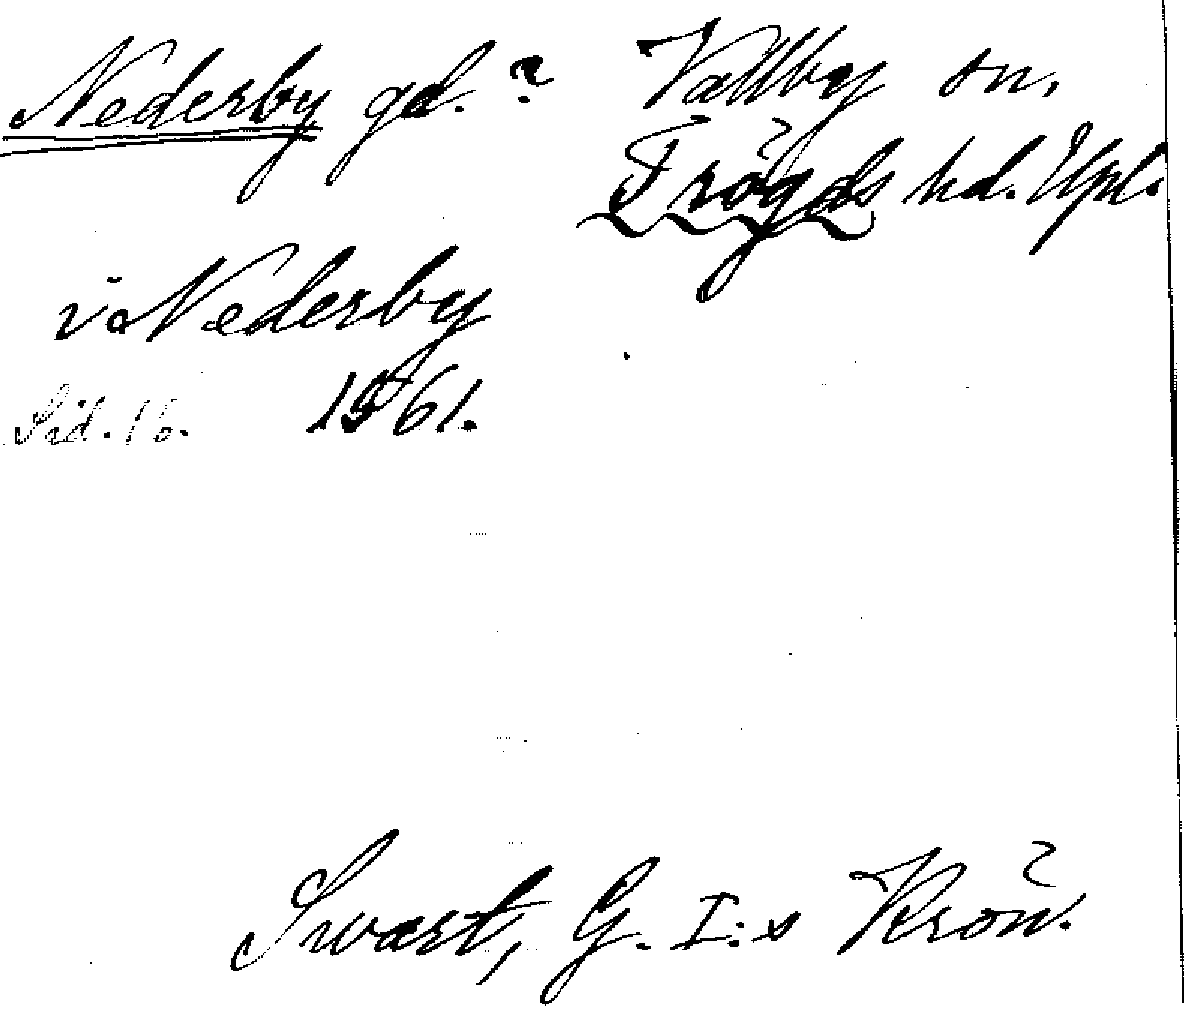 Nederby gd.? Vallby sn,
Trögds hd. Upl.
i Nederby
Sid. 16. 1561.
Swart, G. I:s Krön.